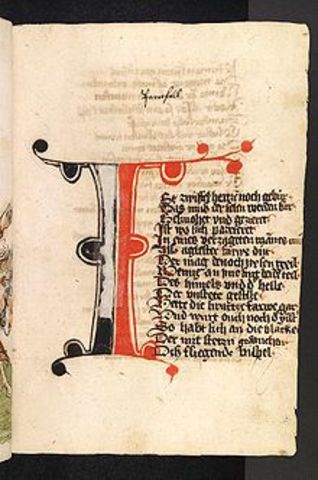 Parcifall
ISt zwifel hertze noch gebur
Das mus der selen werden sur
Gesmohet vnd gezieret
Ist wo sich parrieret
In eines verzageten mannes mut
Als agelester farwe dut
Der mag dennoch wesen geil
Wenne an yme sint beide teil
Des himels vnd d helle
Der vnstete geselle
Hett die swartze farwe gar
Vnd wurt ouch noch d
So habt sich an die blancke
Der mit stetem gedancken
Dis fliegende bilspel